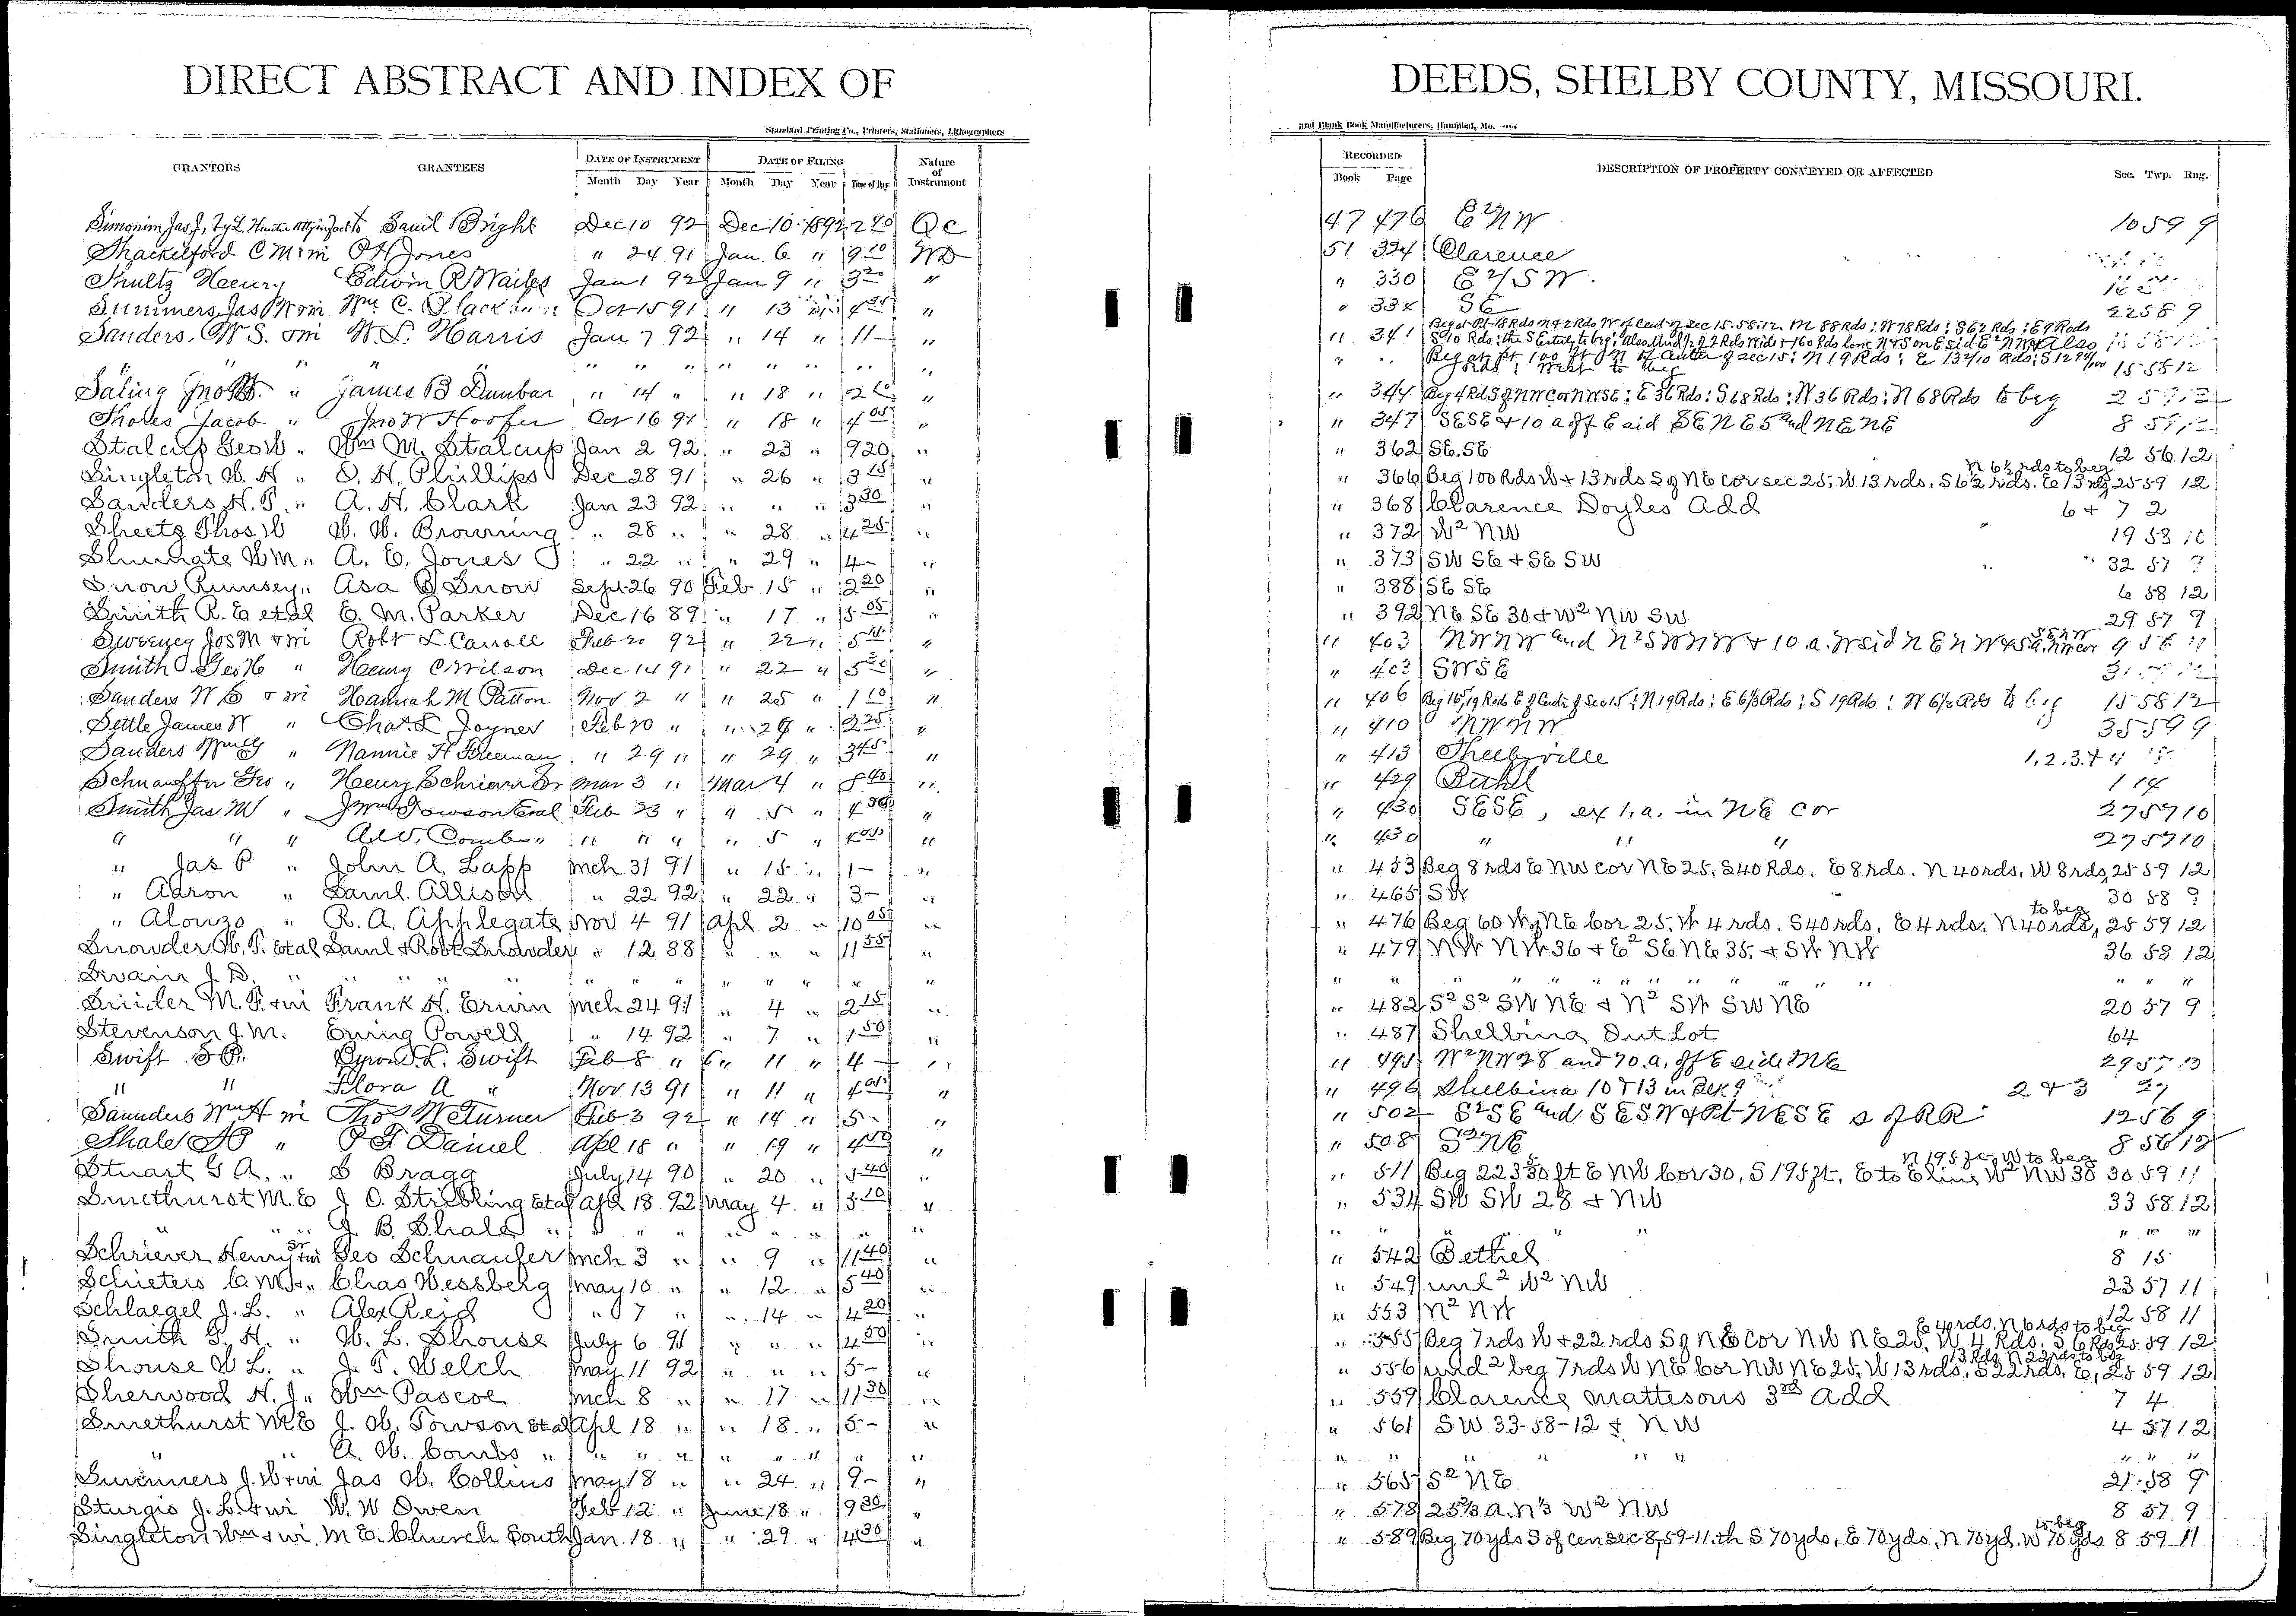 DIRECT ABSTRACT AND INDEX OF
Standard Printing Co., Printers, Stationers, Lithographers
GRANTORS GRANTEES DATE OF INSTRUMENT DATE OF FILING Nature of Instrument
Month Day Year Month Day Year Time of Day
Simonim, Jas J, Saml Bright Dec 10 92 Dec 10 1892 2 40 Qc
Shackelford C M & wi P H Jones " 24 91 Jan 6 " 9 10 WD
Shultz Henry Edwin R Wailes Jan 1 92 Jan 9 " 3 20 "
Summers, Jas W & wi Wm C. Blackburn Oct 15 91 " 13 " 4 35 "
Sanders, W S. & wi W. T. Harris Jan 7 92 " 14 " 11 — "
" " " " " " " " " " " "
Saling Jno " James B Dunbar " 14 " " 18 " 2 10 "
Sholes Jacob " Jno W Hoofer Oct 16 91 " 18 " 4 05 "
Stalcup Geo W " Wm M. Stalcup Jan 2 92 " 23 " 9 20 "
Singleton W. H " O. H. Phillips Dec 28 91 " 26 " 3 15 "
Sanders H. T. " A. H. Clark Jan 23 92 " " " 3 30 "
Sheetz Thos W W. W. Browning " 28 " " 28 " 4 25 "
Shumate Wm " A. E. Jones " 22 " " 29 " 4 — "
Snow Rumsey " Asa B Snow Sept 26 90 Feb 15 " 2 20 "
Smith R. E et al E. M. Parker Dec 16 89 " 17 " 5 05 "
Sweeney Jos M & wi Robt L Carroll Feb 20 92 " 22 " 5 15 "
Smith Geo H " Henry C Wilson Dec 14 91 " 22 " 5 20 "
Sanders W S & wi Hannah M Patton Nov 2 " " 25 " 1 10 "
Settle James W " Chas L Joyner Feb 20 " " 29 " 2 25 "
Sanders Wm " Nannie H Freeman " 29 " " 29 " 3 45 "
Schnauffer Geo " Henry Schriever Sr Mar 3 " Mar 4 " 8 40 "
Smith Jas M " J Wm Towson et al Feb 23 " " 5 " 4 00 "
" " " A W. Combs " " " " " 5 " 4 00 "
" Jas P " John A. Lapp Mch 31 91 " 15 " 1 — "
" Aaron " Saml. Allison " 22 92 " 22 " 3 — "
" Alonzo " R. A. Applegate Nov 4 91 Apl 2 " 10 05 "
Snowder W. T. et al Saml & Robt Snowder " 12 88 " " " 11 55 "
Swain J D. " " " " " " " " " " "
Snider M. F. & wi Frank H. Erwin Mch 24 91 " 4 " 2 15 "
Stevenson J. M. Ewing Powell " 14 92 " 7 " 1 50 "
Swift S P. Byron L. Swift Feb 8 " " 11 " 4 — "
" " Flora A " Nov 13 91 " 11 " 4 05 "
Saunders Wm H wi Thos W Turner Feb 3 92 " 14 " 5 — "
Shale " P F Daniel Apl 18 " " 19 " 4 50 "
Stuart G A. " S Bragg July 14 90 " 20 " 5 40 "
Smethurst M. E J C. Stribling et al Apl 18 92 May 4 " 5 10 "
" " J. B. Shale " " " " " " " " "
Schriever Henry Sr & wi Geo Schnaufer Mch 3 " " 9 " 11 40 "
Schieters C M & " Chas Wessberg May 10 " " 12 " 5 40 "
Schlaegel J. L. " Alex Reid " 7 " " 14 " 4 20 "
Smith G. H. " W. L. Shouse July 6 91 " " " 4 50 "
Shouse W L. " J. T. Welch May 11 92 " " " 5 — "
Sherwood H. J. " Wm Pascoe Mch 8 " " 17 " 11 30 "
Smethurst M E J. W. Towson et al Apl 18 " " 18 " 5 — "
" " A. W. Combs " " " " " " " " "
Summers J. W & wi Jas W. Collins May 18 " " 24 " 9 — "
Sturgis J. L. & wi W. W Owen Feb 12 " June 18 " 9 30 "
Singleton Wm & wi. M E. Church South Jan. 18 " " 29 " 4 30 "
DEEDS, SHELBY COUNTY, MISSOURI.
and Blank Book Manufacturers, Hannibal, Mo.
RECORDED DESCRIPTION OF PROPERTY CONVEYED OR AFFECTED Sec. Twp. Rng.
Book Page
47 476 E2 NW 10 59 9
51 324 Clarence
" 330 E 2/ S W.
" 334 SE 22 58 9
" 341 Beg at Pt 18 Rds N & 2 Rds W of Cent of Sec 15.58.12. N 88 Rds; W 78 Rds; S 62 Rds; E 9 Rds
S 10 Rds; th S E to beg; Also Und 1/2 of 2 Rds wide & 160 Rds long N & S on E sid E2 NW Also
" " Beg at pt 100 ft N of center of sec 15; N 19 Rds; E 13 2/10 Rds; S 12 rds; West to beg 15 58 12
" 344 Beg 4 Rd S of NW cor NW SE; E 36 Rds; S 68 Rds; W 36 Rds; N 68 Rds to beg
" 347 SE SE & 10 a off E sid SE NE 5 and NE NE 8
" 362 SE. SE 12 56 12
N 6 1/2 rds to beg
" 366 Beg 100 Rds W & 13 rds S of NE cor sec 25; W 13 rds. S 6 1/2 rds. E 13 rds 25 59 12
" 368 Clarence Doyles Add 6 & 7 2
" 372 W2 NW 19 58 10
" 373 SW SE & SE SW 32 57
" 388 SE SE 6 58 12
" 392 NE SE 30 & W2 NW SW 29 57 9
" 403 NW NW and N2 SW NW & 10 a. W sid N E N W & 5 a. NW cor SE NW 9 56 11
" 403 SW SE
" 406 Beg 16 5/19 Rods E of Centr of Sec 15; N 19 Rds; E 6 1/3 Rds; S 19 Rds; W 6 1/2 Rds to beg 15 58 12
" 410 NW NW 35 59 9
" 413 Shelbyville 1, 2, 3, & 4
" 429 Bethel 1 14
" 430 SE SE, ex 1. a. in NE cor 27 57 10
" 430 " " " 27 57 10
" 453 Beg 8 rds E NW cor NE 25. S 40 Rds. E 8 rds. N 40 rds. W 8 rds, 25 59 12
" 465 SW 30 58
to beg
" 476 Beg 60 W of NE Cor 25. W 4 rds. S 40 rds. E 4 rds. N 40 rds, 25 59 12
" 479 NW NW 36 & E2 SE NE 35. & SW NW 36 58 12
" " " " " " " " " " " "
" 482 S2 S2 SW NE & N2 SW SW NE 20 57 9
" 487 Shelbina Out Lot 64
" 491 W2 NW 28 and 70. a. off E side NE
" 496 Shelbina 10 & 13 in Blk 9 2 & 3 27
" 502 S2 SE and S E S W & Pt NE SE S of RR 12 56 9
" 508 S2 NE 8 56 12
N 195 ft, W to beg
" 511 Beg 223 ft E NW Cor 30, S 195 ft. E to E line W2 NW 30 30 59 11
" 534 SW SW 28 & NW 33 58 12
" " " " " " "
" 542 Bethel 8 15
" 549 und 2 W2 NW 23 57 11
" 553 N2 NW 12 58 11
E 4 rds. N 6 rds to beg
" 555 Beg 7 rds W & 22 rds S of NE cor NW NE 25, W 4 Rds. S 6 Rds 25 59 12
13 Rds, N 22 rds to beg
" 556 und 2 beg 7 rds W NE Cor NW NE 25. W 13 rds. S 22 rds. E, 25 59 12
" 559 Clarence Mattesons 3rd Add 7 4
" 561 SW 33-58-12 & NW 4 57 12
" " " " " " "
" 565 S2 NE 21 58 9
" 578 25 2/3 A. N 1/3 W2 NW 8 57 9
to beg
" 589 Beg 70 yds S of Cen sec 8, 59-11. th S 70 yds, E 70 yds, N 70 yd. W 70 yds 8 59 11